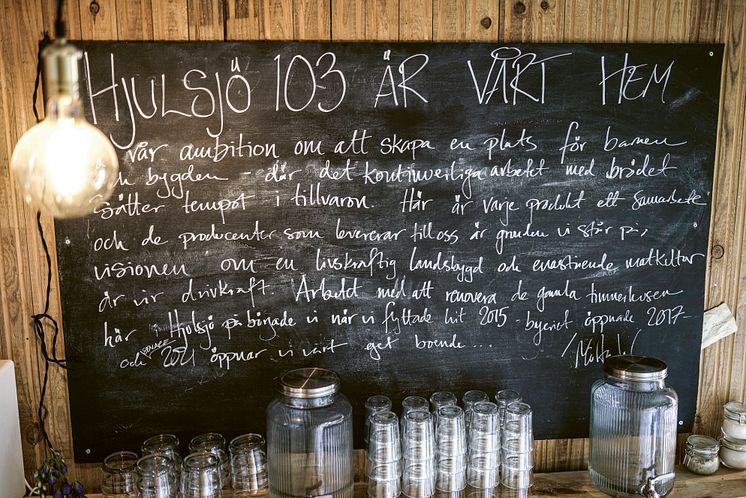 HJULSJÖ 103 ÄR VÅRT HEM
vår ambition om att skapa en plats för barnen
och bygden - där det kontinuerliga arbetet med brödet
sätter tempot i tillvaron. Här är varje produkt ett samarbete
och de producenter som levererar till oss är grunden vi står på,
visionen om en livskraftig landsbygd och enastående matkultur
är vår drivkraft. Arbetet med att renovera de gamla timmerhusen
här i Hjulsjö påbörjade vi när vi flyttade hit 2015 - bageriet öppnade 2017 -
och 2021 öppnar vi vårt eget boende...